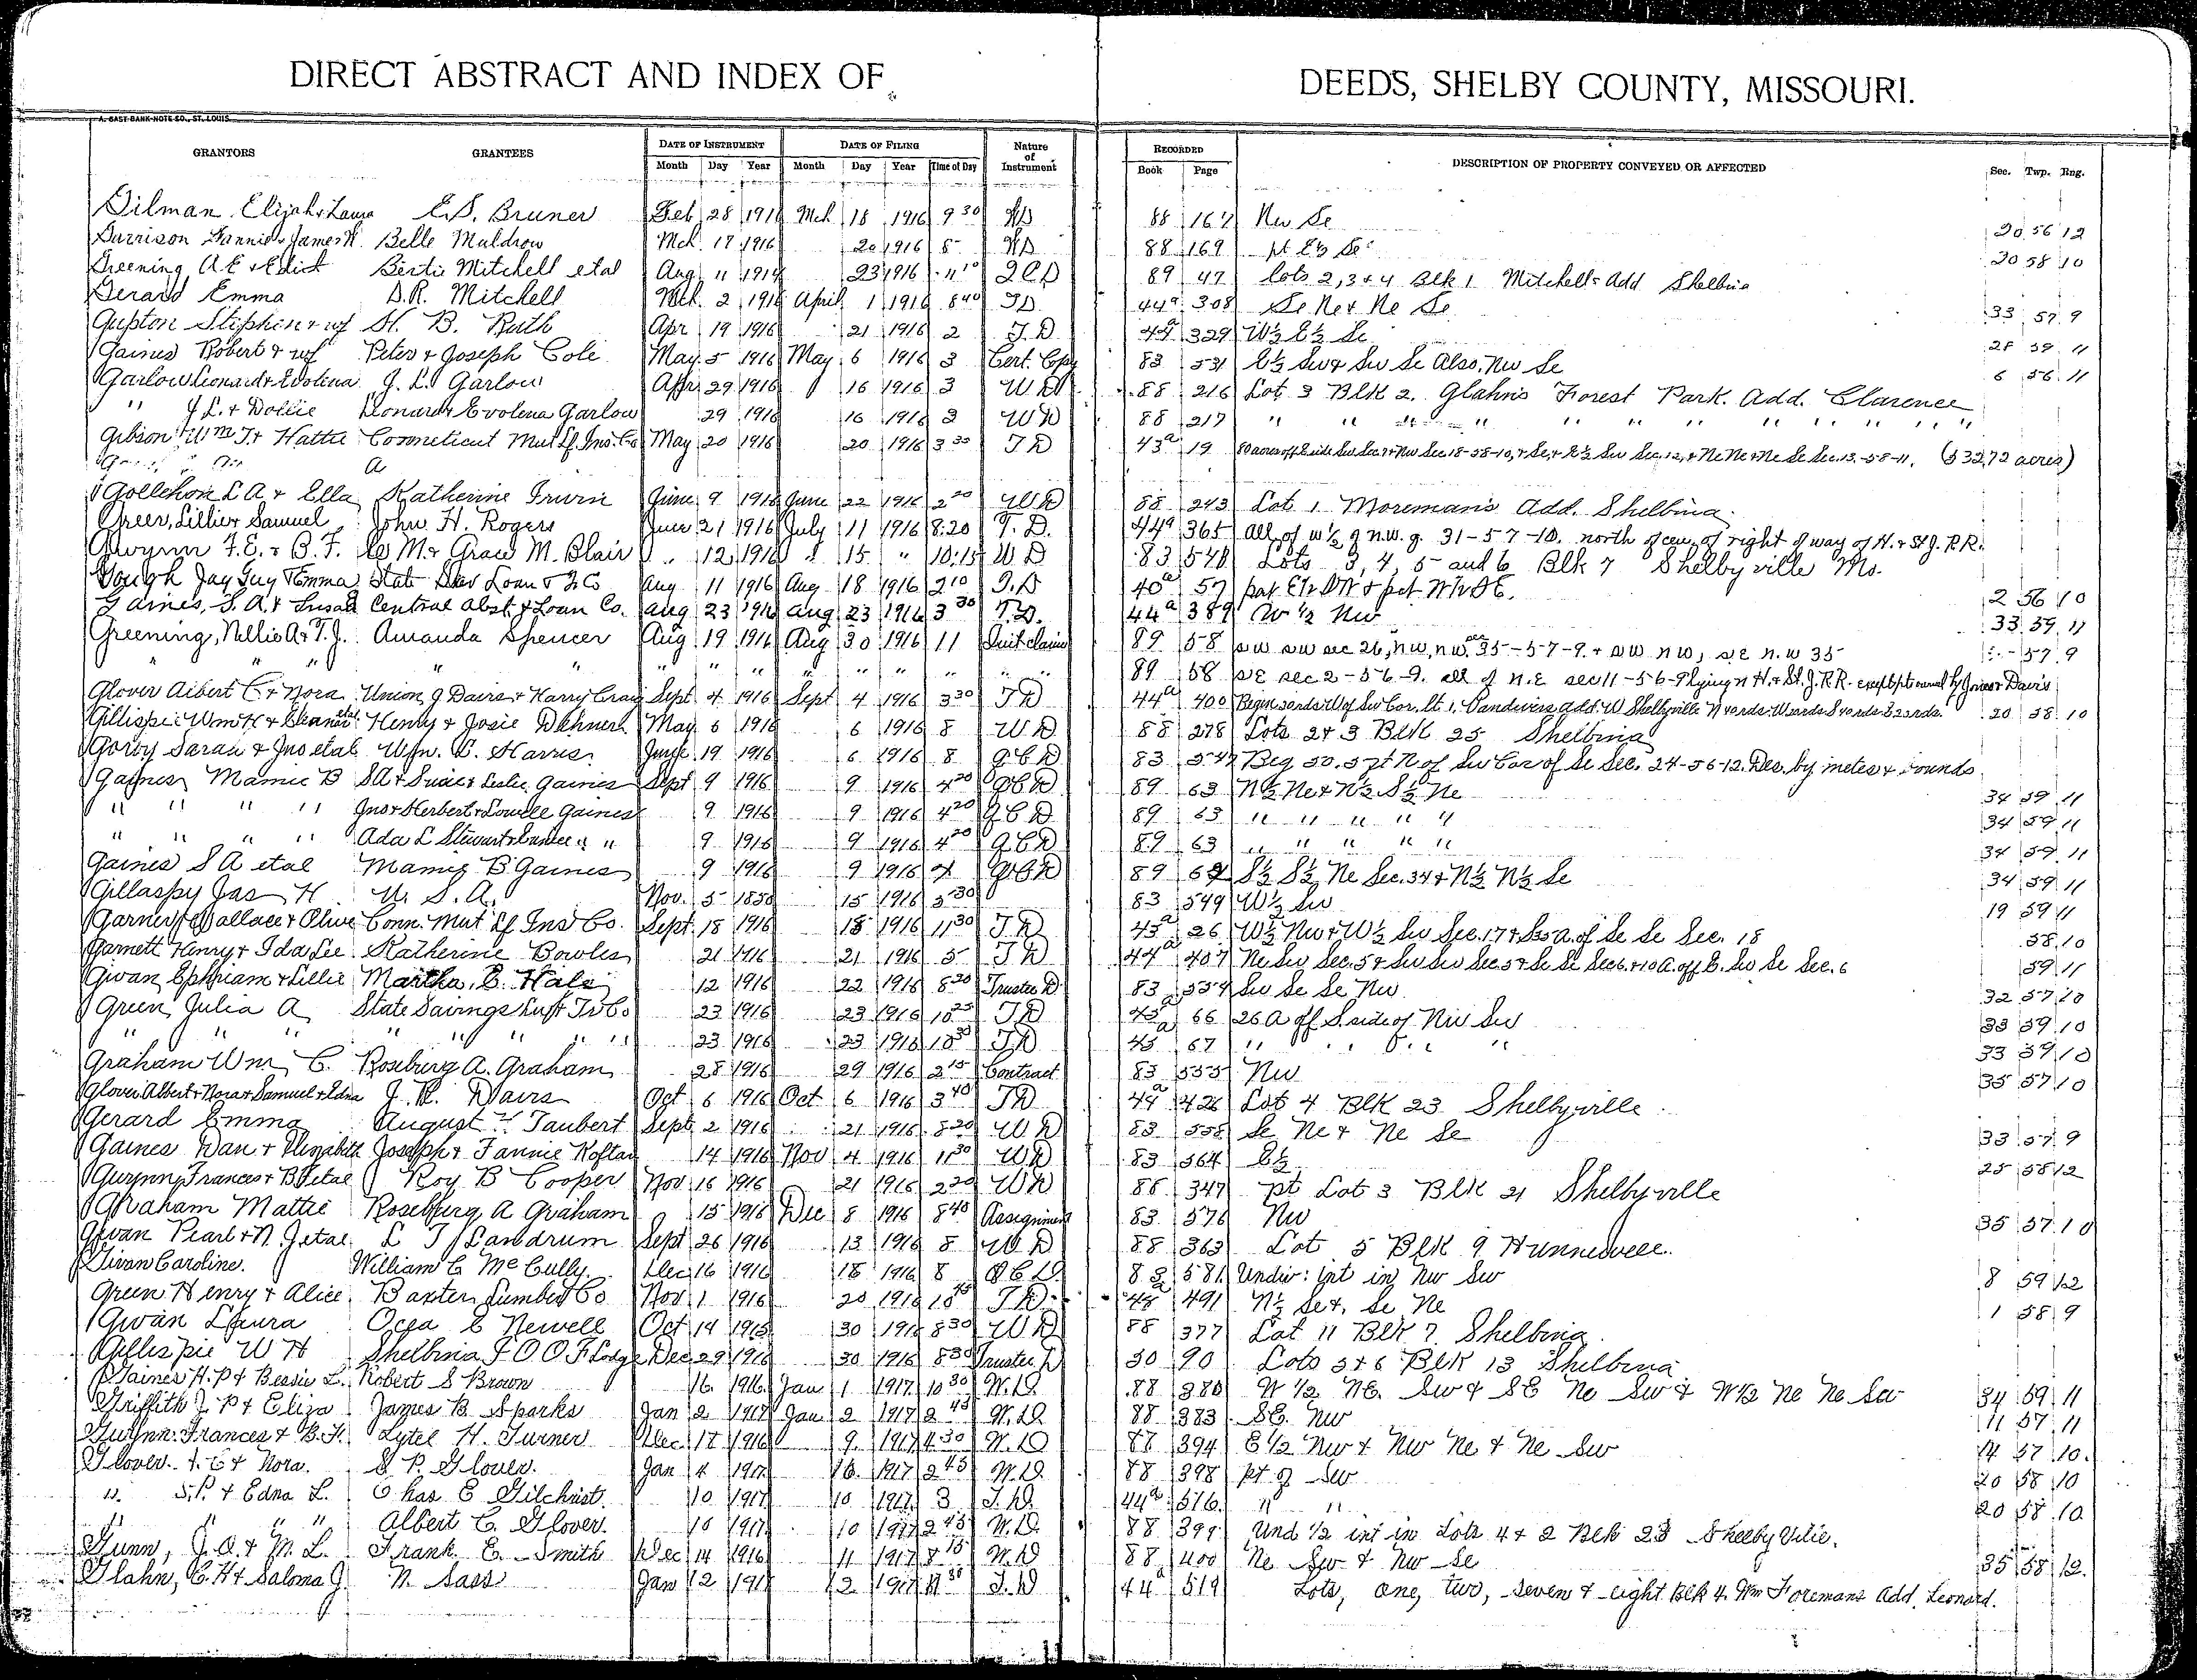 DIRECT ABSTRACT AND INDEX OF
DEEDS, SHELBY COUNTY, MISSOURI.
A. GAST BANK-NOTE CO., ST. LOUIS
GRANTORS GRANTEES DATE OF INSTRUMENT DATE OF FILING Nature of Instrument RECORDED DESCRIPTION OF PROPERTY CONVEYED OR AFFECTED Sec. Twp. Rng.
Month Day Year Month Day Year Time of Day Book Page
Gilman Elijah & Laura E.S. Bruner Feb 28 1916 Mch 18 1916 9 30 WD 88 167 Nw Se 20 56 12
Garrison Fannie & James K. Belle Muldrow Mch. 17 1916 20 1916 8 WD 88 169 pt E½ Se 20 58 10
Greening A.E & Edict Bertie Mitchell etal Aug 11 1914 23 1916 11 10 QCD 89 47 Lots 2, 3 & 4 Blk 1 Mitchells Add Shelbina
Gerard Emma D.R. Mitchell Mch. 2 1916 April 1 1916 8 40 TD 44a 308 Se Ne & Ne Se 33 57 9
Gupton Stephen & wf H. B. Ruth Apr 19 1916 21 1916 2 T.D 44a 329 W½ E½ Se 28 59 11
Gaines Robert & wf Peter & Joseph Cole May 5 1916 May 6 1916 3 Cert. Copy 83 531 E½ Sw & Sw Se Also, Nw Se 6 56 11
Garlow Leonard & Evolena J. L. Garlow Apr 29 1916 16 1916 3 WD 88 216 Lot 3 Blk 2. Glahn's Forest Park. Add. Clarence
" J L. & Dollie Leonard & Evolena Garlow 29 1916 16 1916 3 WD 88 217 " " " " " " " " " "
Gibson Wm T. & Hattie Connecticut Mut Lf. Ins. Co May 20 1916 20 1916 3 30 TD 43a 19 80 acres off E side Sw Sec 7 & Nw Sec 18-58-10, & Se, & E½ Sw Sec. 12, & Ne Ne & Ne Se Sec. 13-58-11. (532,72 acres)
Gollehon L A & Ella Katherine Irwin June 9 1916 June 22 1916 2 20 WD 88 243 Lot 1 Moreman's Add. Shelbina.
Greer, Lillie & Samuel John H. Rogers June 21 1916 July 11 1916 8:20 T. D. 44a 365 All of w ½ of n.w. g. 31-57-10. north of cen. of right of way of H. & St J. R.R.
Gwynn F.E. & B.F. Le M. & Grace M. Blair " 12 1916 " 15 " 10:15 W D 83 540 Lots 3, 4, 5 and 6 Blk 7 Shelbyville Mo.
Gough Jay Guy & Emma State Sav Loan & T Co Aug 11 1916 Aug 18 1916 2 10 T.D 40a 57 2 56 10
Gaines, S. A. & Susan Central Abst. & Loan Co. Aug 23 1916 Aug 23 1916 3 30 T.D. 44a 389 W ½ Nw 33 59 11
Greening, Nellie A & T.J. Amanda Spencer Aug 19 1916 Aug 30 1916 11 Quit claim 89 58 sw sw sec 26, nw, nw, sec 35-57-9. & sw nw, se n.w 35 57 9
" " " " " " " " " " " " 89 58 SE sec 2-56-9. all of n.e sec 11-56-9 lying n H. & St. J. R.R. except pt owned by Jones & Davis
Glover Albert C. & Nora Union J Davis & Harry Craig Sept 4 1916 Sept 4 1916 3 30 TD 44a 400 20 58 10
Gillispie Wm H & Eleanor etal Henry & Josie Dehner May 6 1916 6 1916 8 WD 88 278 Lots 2 & 3 Blk 25 Shelbina
Gorby Sarah & Jno etal Wm. C. Harris June 19 1916 6 1916 8 QCD 83 547 Beg 30.57 ft N of Sw Cor of Se Sec. 24-56-12. Des. by metes & bounds
Gaines Mamie B SA & Susie & Leslie Gaines Sept 9 1916 9 1916 4 20 QCD 89 63 N½ Ne & N½ S½ Ne 34 59 11
" " " " Jno & Herbert & Lowell Gaines 9 1916 9 1916 4 20 QCD 89 63 " " " " " 34 59 11
" " " " Ada L Stewart & Eunice " " 9 1916 9 1916 4 20 QCD 89 63 " " " " " 34 59 11
Gaines S A etal Mamie B Gaines 9 1916 9 1916 4 QCD 89 64 S½ S½ Ne Sec. 34 & N½ N½ Se 34 59 11
Gillaspy Jas H U. S. A. Nov. 5 1850 15 1916 3 30 83 549 W½ Sw 19 59 11
Garner Wallace & Olive Conn. Mut Lf Ins Co. Sept 18 1916 18 1916 11 30 TD 43a 26 W½ Nw & W½ Sw Sec. 17 & S35 A. of Se Se Sec. 18 58 10
Garnett Henry & Ida Lee Katherine Bowles 21 1916 21 1916 5 TD 44a 407 Ne Sw Sec. 5 & Sw Sw Sec 5 & Se Se Sec 6 & 10 A. off E. Sw Se Sec. 6 59 11
Gwan Ephriam & Lillie Martha. E. Hale 12 1916 22 1916 8 20 Trustee D 83 554 Sw Se Se Nw 32 57 10
Green Julia A State Savings Trust Co 23 1916 23 1916 10 25 TD 45a 66 26 A off S. side of Nw Sw 33 59 10
" " " " " " " 23 1916 23 1916 10 30 TD 45a 67 " " " " 33 59 10
Graham Wm C. Roseburg A. Graham 28 1916 29 1916 2 15 Contract 83 555 Nw 35 57 10
Glover Albert & Nora & Samuel & Edna J. W. Davis Oct 6 1916 Oct 6 1916 3 40 TD 44a 426 Lot 4 Blk 23 Shelbyville
Gerard Emma August Taubert Sept 2 1916 21 1916 8 20 WD 83 558 Se Ne & Ne Se 33 57 9
Gaines Dan & Elizabeth Joseph & Fannie Koftan 14 1916 Nov 4 1916 11 30 WD 83 564 E½ 25 58 12
Gwynn Frances & B F etal Roy B Cooper Nov 16 1916 21 1916 2 20 WD 88 347 pt Lot 3 Blk 21 Shelbyville
Graham Mattie Roseburg A Graham 15 1916 Dec 8 1916 8 40 Assignment 83 576 Nw 35 57 10
Gwan Pearl & N. J etal L J Landrum Sept 26 1916 13 1916 8 WD 88 363 Lot 5 Blk 9 Hunnewell.
Givan Caroline. William C McCully. Dec 16 1916 18 1916 8 Q C D. 83 581 Undiv: Int in Nw Sw 8 59 12
Green Henry & Alice Baxter Lumber Co Nov 1 1916 20 1916 10 45 T.D. 45a 491 N½ Se &. Se Ne 1 58 9
Gwan Laura Ocea E Newell Oct 14 1915 30 1916 8 30 WD 88 377 Lot 11 Blk 7 Shelbina.
Gillespie W H Shelbina I O O F Lodge Dec 29 1916 30 1916 8 30 Trustee D 30 90 Lots 5 & 6 Blk 13 Shelbina
Gaines H. P & Bessie L. Robert S Brown 16 1916 Jan 1 1917 10 30 W.D. 88 380 W ½ NE. Sw & SE Ne Sw & W½ Ne Ne Sw 34 59 11
Griffith J. P & Eliza James B Sparks Jan 2 1917 Jan 2 1917 2 45 W.D. 88 383 SE. NW 11 57 11
Gwynn. Frances & B. F. Lytel H. Turner Dec 17 1916 9 1917 4 30 W.D 87 394 E ½ Nw & Nw Ne & Ne Sw 14 57 10.
Glover. A. C & Nora. S P. Glover. Jan 4 1917 16 1917 2 45 W.D. 88 398 pt of Sw 20 58 10
" S.P. & Edna L. Chas E Gilchrist. 10 1917 10 1917 3 T.D. 44a 516 " " 20 58 10
" " " " Albert C. Glover. 10 1917 10 1917 2 45 W.D. 88 399 Und ½ int in Lots 4 & 2 Blk 23 Shelbyville.
Gunn, J. A. & M. L. Frank E. Smith Dec 14 1916 11 1917 8 15 W.D 88 400 Ne Sw & Nw Se 35 58 12.
Glahn, C. H & Saloma J N. Sass Jan 12 1917 12 1917 11 30 T.D 44a 519 Lots, one, two, seven & eight Blk 4. Wm Foremans Add. Leonard.